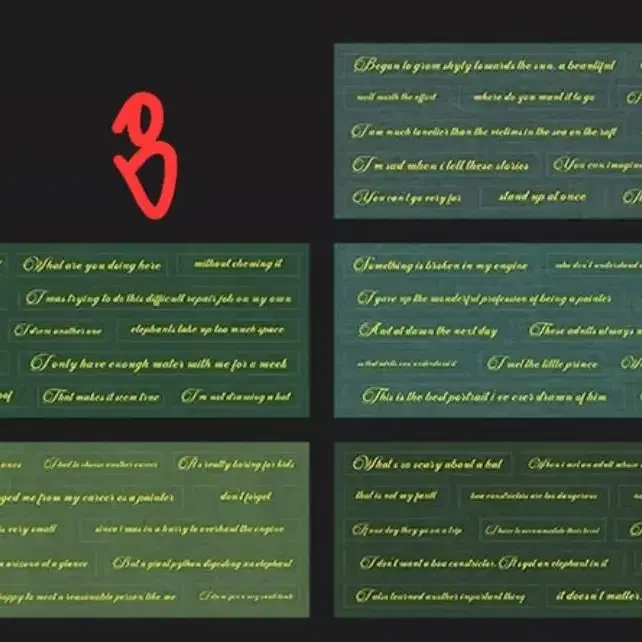 B
Began to grow shyly towards the sun. a beautiful
well worth the effort where do you want it to go
I am much lonelier than the victims in the sea on the raft
I'm sad when i tell these stories You can imagine
You can't go very far stand up at once
What are you doing here without chewing it
I was trying to do this difficult repair job on my own
I drew another one elephants take up too much space
I only have enough water with me for a week
That makes it seem true I'm not drawing a hat
Something is broken in my engine who don't understand
I gave up the wonderful profession of being a painter
And at dawn the next day These adults always
so that adults can understand it I met the little prince
This is the best portrait i've ever drawn of him
I had to choose another career It's really boring for kids
me from my career as a painter don't forget
is very small since i was in a hurry to overhaul the engine
arizona at a glance But a giant python digesting an elephant
happy to meet a reasonable person like me
What's so scary about a hat When i met an adult
that is not my fault boa constrictors are too dangerous
If one day they go on a trip I have to accommodate their level
I don't want a boa constrictor. It's got an elephant in it
I also learned another important thing it doesn't matter